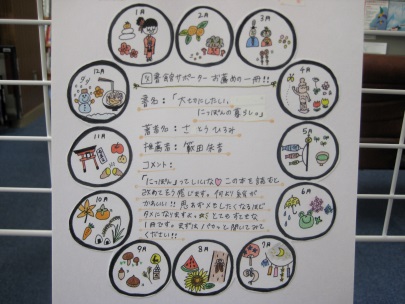 1月
2月
3月
4月
5月
6月
7月
8月
9月
10月
11月
12月
サポーター お薦めの一冊!!
書名:「大切にしたい、
にっぽんの暮らし。」
著者名:さとうひろみ
推薦者:
コメント:
「にっぽん」っていいな♡ この本を読むと
改めてそう感じます。何より
かわいい!! 思わずメモしたくなるほど
タメになりますよ。 とてもすてきな
1冊です。まずは1ページ 開いてみて
ください!!